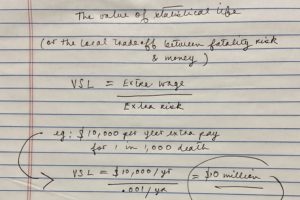 The value of statistical life
(or the local tradeoff between fatality risk
& money)
VSL = Extra wage
Extra risk
eg: $10,000 per year extra pay
for 1 in 1,000 death
VSL = $10,000/yr = $10 million
.001/yr